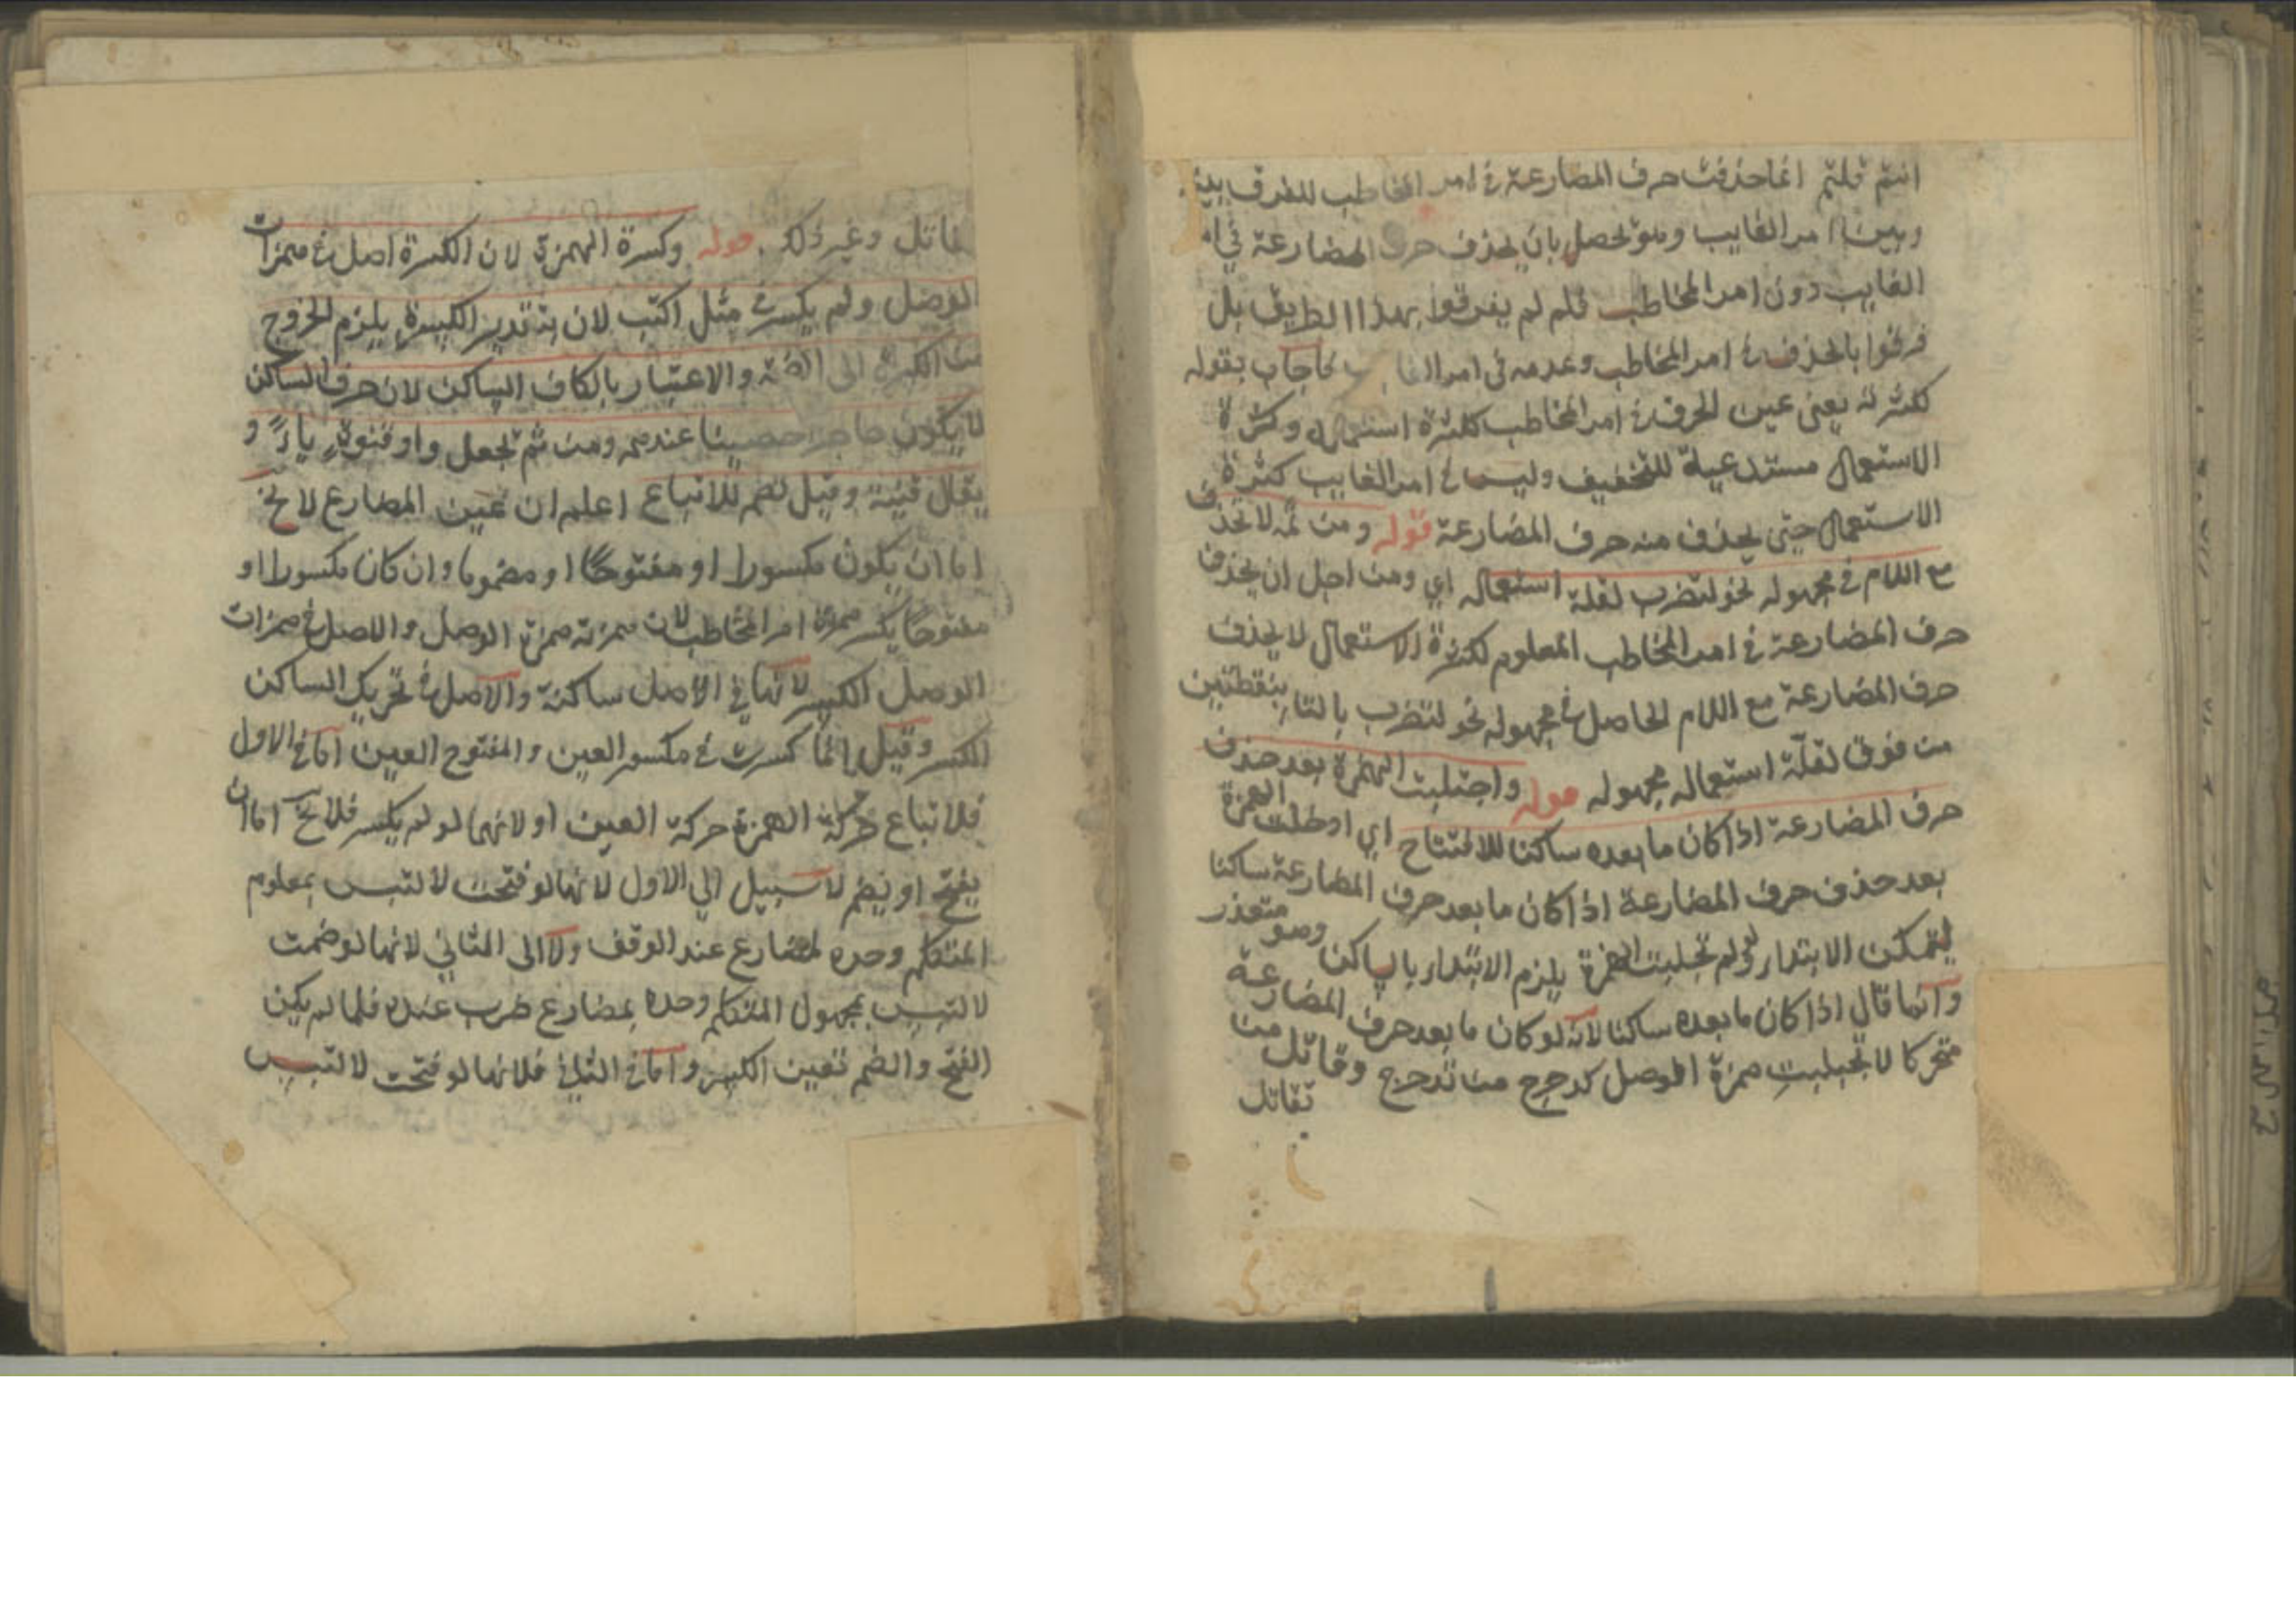 انتم قلتم انما حذفت حرف المضارعة في امر المخاطب للفرق بينه
وبين امر الغايب وهو يحصل بان يحذف حرف المضارعة في امر
الغايب دون امر المخاطب فلم لم يفرقوا بهذا الطريق بل
فرقوا بالحذف في امر المخاطب وعدمه في امر الغايب فاجاب بقوله
لكثرته يعني عين الحرف في امر المخاطب لكثرة استعماله وكثرة
الاستعمال مستدعية للتخفيف وليس في امر الغايب كثرة
الاستعمال حتى يحذف منه حرف المضارعة قوله ومن ثمه لا تحذف
مع اللام في مجهوله نحو لتضرب لقلة استعماله اي ومن اجل ان يحذف
حرف المضارعة في امر المخاطب المعلوم لكثرة الاستعمال لا يحذف
حرف المضارعة مع اللام الحاصل في مجهوله نحو لتضرب بالتاء بنقطتين
من فوق لقلة استعماله مجهوله قوله واجتلبت الهمزة بعد حذف
حرف المضارعة اذا كان ما بعده ساكنا للافتتاح اي ادخلت الهمزة
بعد حذف حرف المضارعة اذا كان ما بعد حرف المضارعة ساكنا
ليتمكن الابتداء لو لم تجلبت الهمزة يلزم الابتداء بالساكن وهو متعذر
وانما قال اذا كان ما بعده ساكنا لانه لو كان ما بعد حرف المضارعة
متحركا لا تجبلبت همزة الوصل كدحرج من تدحرج وقاتل من
تقاتل
تقاتل وغير ذلك قوله وكسرة الهمزة لان الكسرة اصل في همزات
الوصل ولم يكسر في مثل اكتب لان بتقدير الكسرة يلزم الخروج
من الكسرة الى الضمة والاعتبار بالكاف الساكن لان حرف الساكن
لا يكون حاجزا حصينا عندهم ومن ثم تجعل واو قنوة ياء و
يقال قنية وقيل تضم للاتباع اعلم ان عين المضارع لا يخ
اما ان يكون مكسورا او مفتوحا او مضموما وان كان مكسورا او
مفتوحا يكسر همزة امر المخاطب لان همزته همزة الوصل والاصل في همزات
الوصل الكسر لانها في الاصل ساكنة والاصل في تحريك الساكن
الكسر وقيل انما كسرت في مكسور العين والمفتوح العين اما في الاول
فلاتباع حركة الهمزة حركة العين او لانهما لو لم يكسر فلا يخ اما ان
يفتح او يضم لا سبيل الي الاول لانها لو فتحت لالتبس بمعلوم
المتكلم وحده لمضارع عند الوقف ولا الى الثاني لانها لو ضمت
لالتبس بمجهول المتكلم وحده بمضارع ضرب عنده فلما لم يكن
الفتح والضم تعين الكسر واما في الثاني فلانها لو فتحت لالتبس